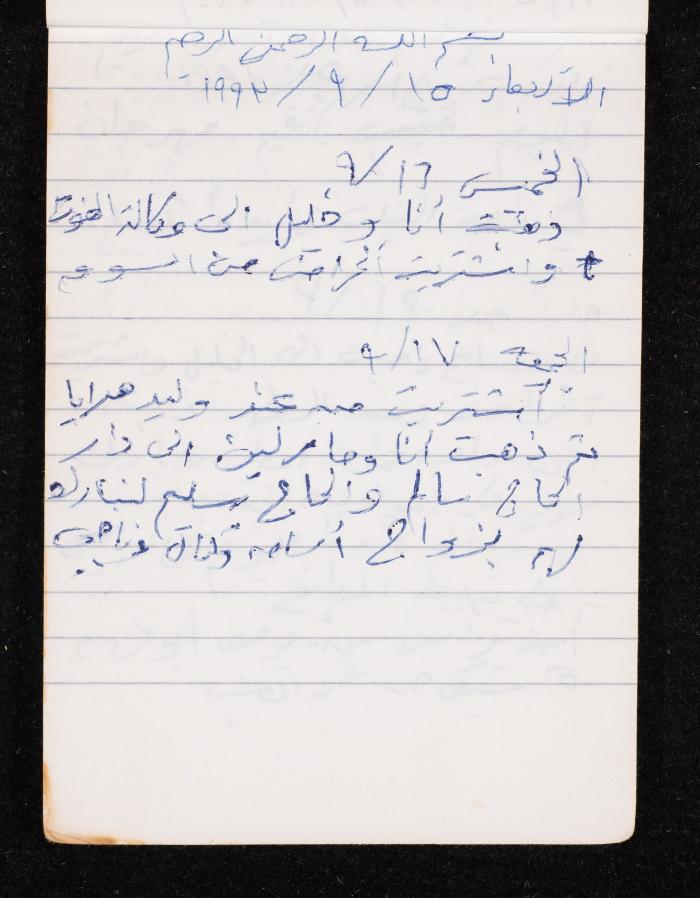 بسم الله الرحمن الرحيم
الأربعاء ١٥ / ٩ / ١٩٩٣
الخميس ١٦ / ٩
ذهبت أنا وخليل الى وكالة الغوث
واشتريت أغراض من السوق
الجمعة ١٧ / ٩
أشتريت من عند وليد هدايا
ثم ذهبت أنا الى دار
الحاج سالم والحاج سليم لنبارك
لهم بزواج أسامه